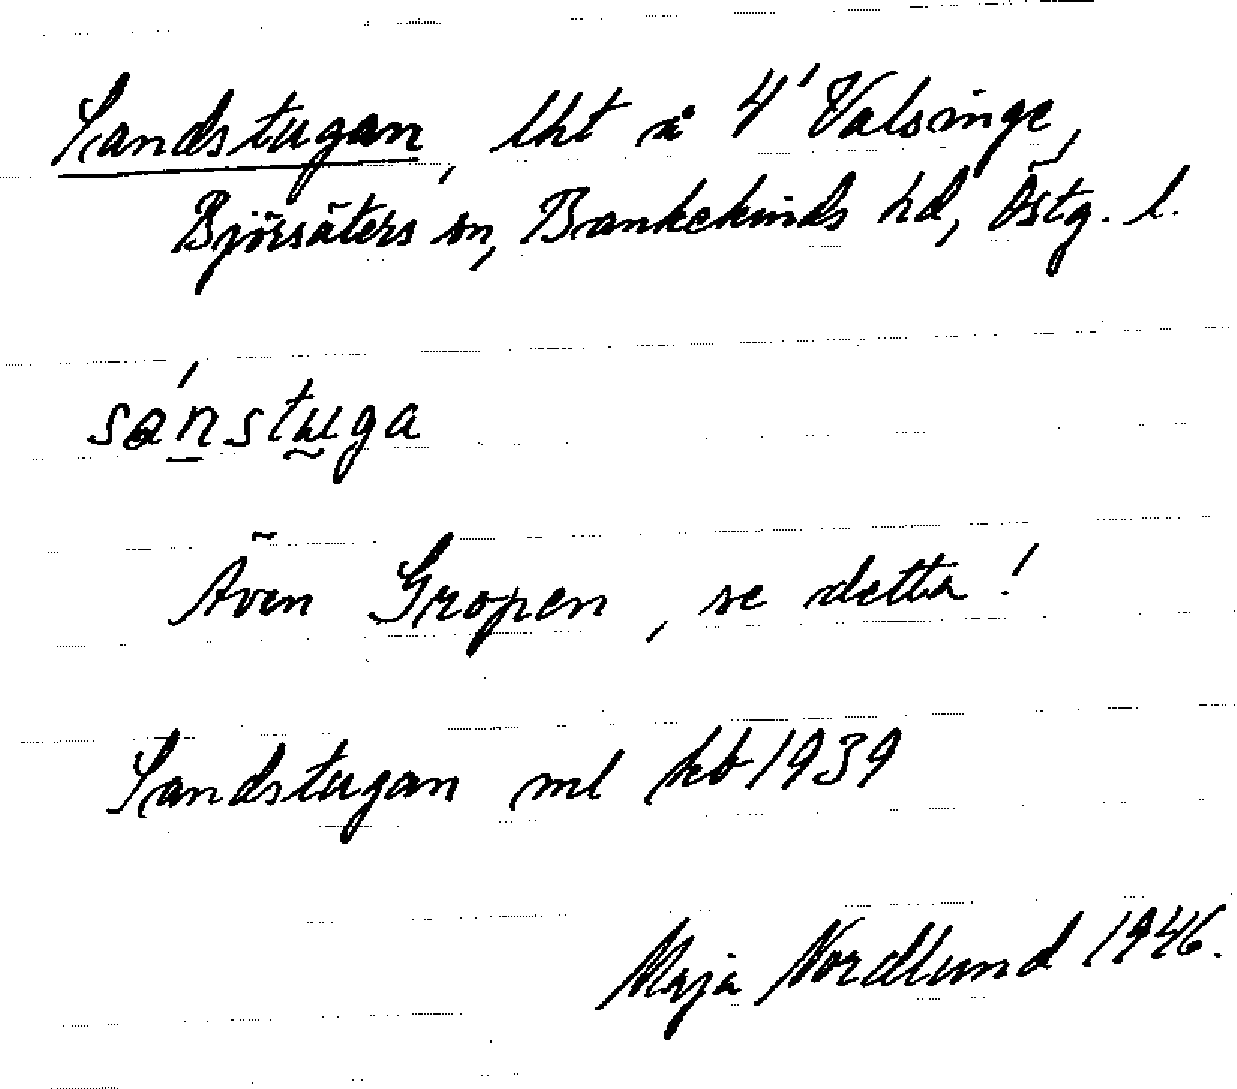 Sandstugan, lht å 4' Valsinge,
Björsäters sn, Bankekinds hd, Östg. l.
sánstuga
Även Gropen, se detta!
Sandstugan ml kb 1939
Maja Nordlund 1946.